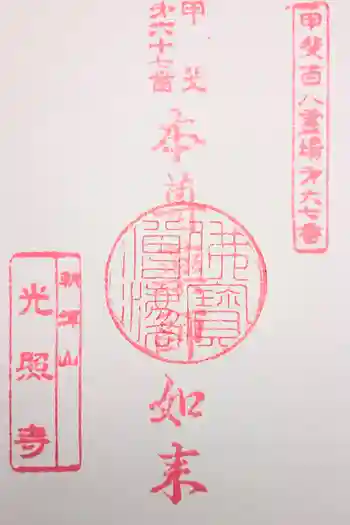 甲斐百八霊場第六七番
甲斐
第六十七番
本尊
如来
佛法僧寶
朝澤山
光照寺